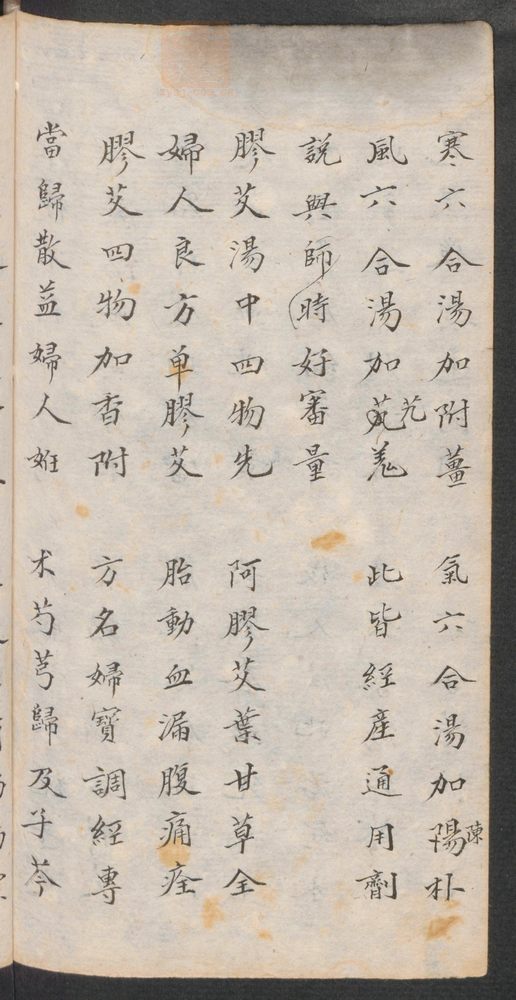 寒六合湯加附薑　氣六合湯加陽陳朴
風六合湯加芄艽羌　此皆經產通用劑
說與師時好審量
膠艾湯中四物先　阿膠艾葉甘草全
婦人良方单膠艾　胎動血漏腹痛痊
膠艾四物加香附　方名婦寶調經專
當歸散益婦人妊　术芍芎歸及子芩